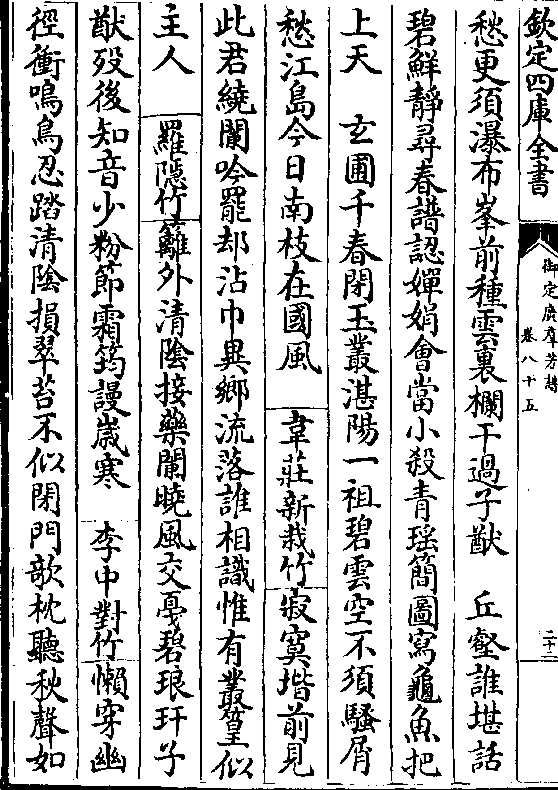 欽定四庫全書
御定廣羣芳譜
卷八十五
二十二
愁更須瀑布峯前種雲裏欄干過子猷　丘壑誰堪話
碧鮮靜尋春譜認嬋娟會當小殺青瑶簡圖寫龜魚把
上天　玄圃千春閉玉叢湛陽一祖碧雲空不須騷屑
愁江島今日南枝在國風　韋莊新栽竹寂寞堦前見
此君繞闌吟罷却沾巾異鄉流落誰相識惟有叢篁似
主人　羅隱竹籬外清陰接藥闌曉風交戞碧琅玕子
猷歿後知音少粉節霜筠謾歲寒　李中對竹懶穿幽
徑衝鳴鳥忍踏清陰損翠苔不似閉門欹枕聽秋聲如